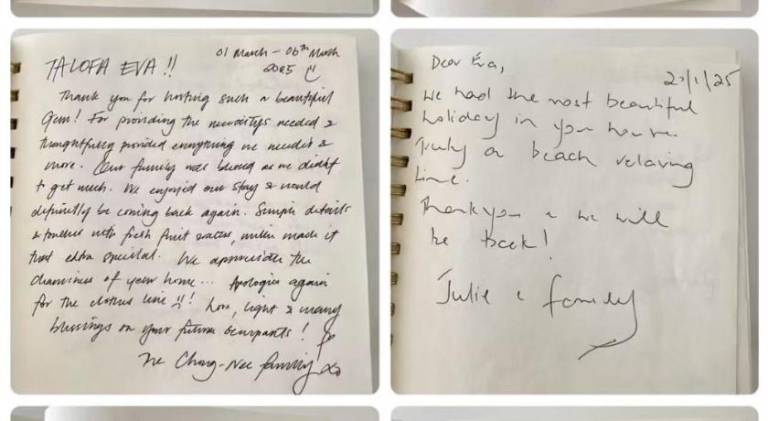 TALOFA EVA !!
01 March – 06th March
2025
Thank you for hosting such a beautiful
Gem! For providing the necessities needed &
thoughtfully provided everything we needed &
more. Our family was blessed as we didn't
to get much. We enjoyed our stay & would
definitely be coming back again. Simple details
& touches with fresh fruit, water, milk made it
that extra special. We appreciate the
cleanliness of your home... Apologies again
for the clothes line !! Love, light & many
blessings on your future occupants!
The Chong-Nee family xo
Dear Eva,
/1/25
We had the most beautiful
holiday in your house.
Truly a beach relaxing
time.
Thankyou & we will
be back!
Julie & family